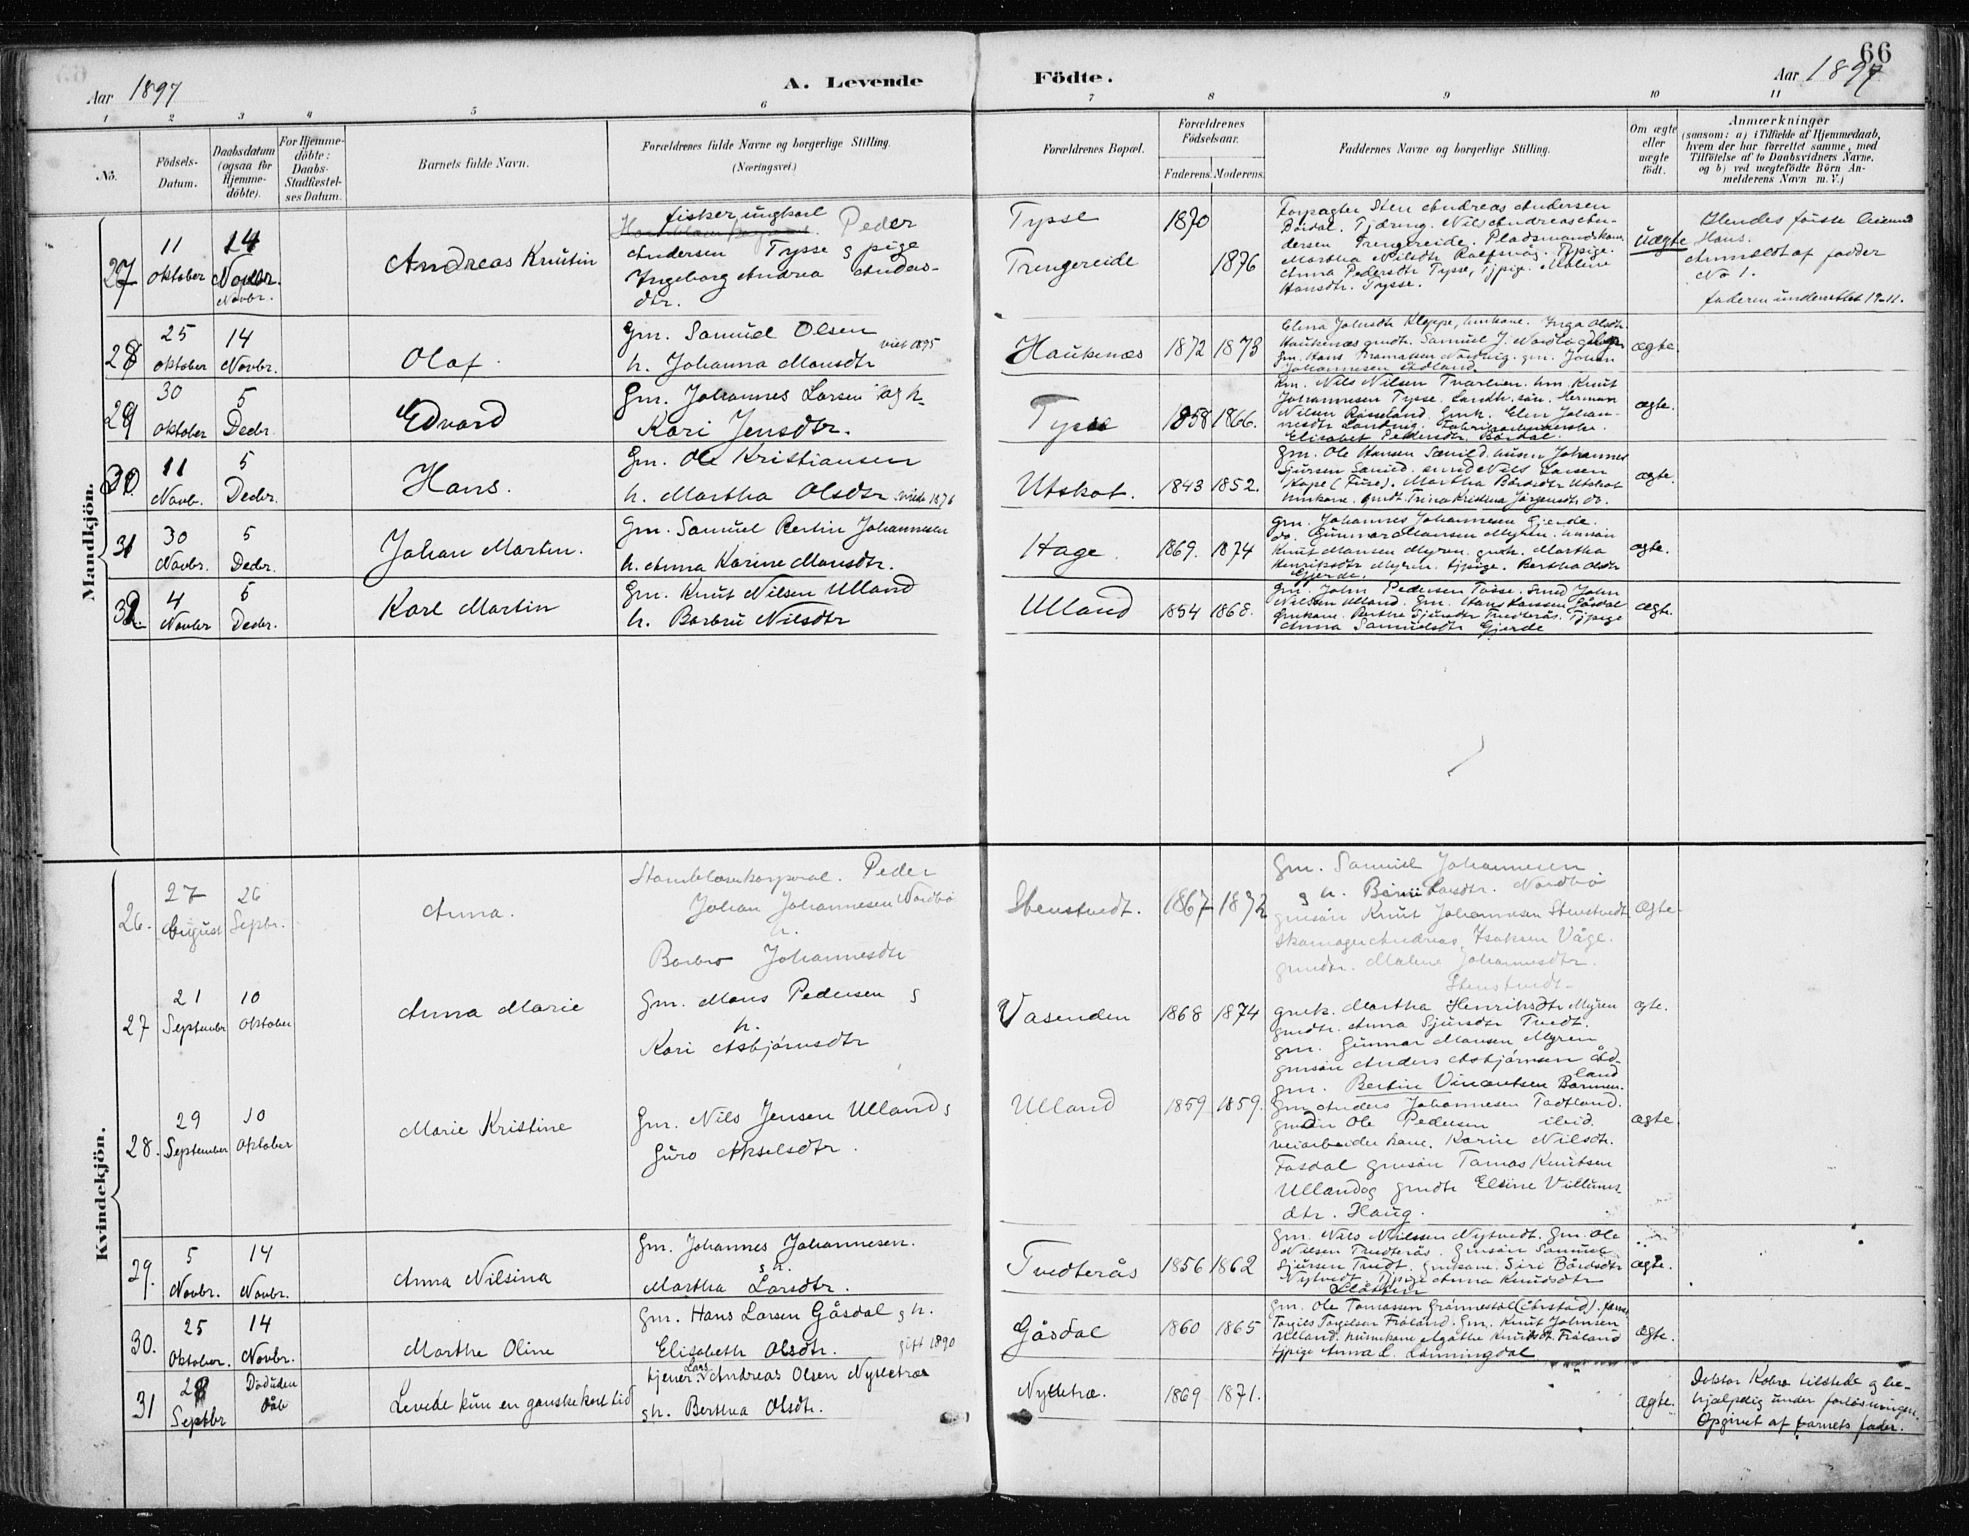 66
Aar 1897
A. Levende Födte.
Aar 1897
1 2 3 4 5 6 7 8 9 10 11
No.
Födsels-Datum.
Daabsdatum (ogsaa for Hjemmedöbte).
For Hjemmedöbte: Daabs-Stadfæstelses Datum.
Barnets fulde Navn.
Forældrenes fulde Navne og borgerlige Stilling. (Næringsvei.)
Forældrenes Bopæl.
Forældrenes Födselsaar.
Faderens. Moderens.
Faddernes Navne og borgerlige Stilling.
Om ægte eller uægte födt.
Anmærkninger
(saasom: a) i Tilfælde af Hjemmedaab, hvem der har forrettet samme, med Tilföielse af to Daabsvidners Navne, og b) ved uægtefödte Börn Anmelderens Navn m. V.)
Mandkjön.
27
11 oktober
14 Novbr.
Novbr.
Andreas Knutin
fisker, ungkarl Peder
Andersen Tysse g pige
Ingeborg Andrea Anders-
dtr.
Tysse
Trengereide
1870
1876
Forpagter Sten Andreas Andersen
Bördal. Tjdreng. Nils Andreas An-
dersen Trengereide. Pladsmandskone
Martha Nilsdtr Rolfsvåg. Tjpige.
Anna Pedersdtr Tysse, Tjpige. Malene
Hansdtr. Tysse.
uægte
Hendes förste leiermd
Hans.
Anmeldt af fadder
No 1.
faderen underrettet 19-11.
28
25 oktober
14 Novbr.
Olaf.
Gm. Samuel Olsen
h. Johanna Monsdtr viet 1895
Haukenæs
1872 1873
Elena Johsdtr Kleppe, huskone. Inga Olsdtr.
Haukenæs gmdtr. Samuel J. Nordbö
Johannesen Ådland
ægte
29
30 oktober
5 Decbr.
Edvard
Gm. Johannes Larsen og h.
Kari Jensdtr.
Tysse
1858 1866.
Gm. Nils Nilsen Tvarleen. hm. Knut
Johannesen Tysse. Landh. sön. Herman
Nilsen Röseland. Gmk. Elen Johan-
nesdtr Landvig. Fabrikarbeiderske
Elisabet Pedersdtr. Bördal.
ægte.
30
11 Novb.
5 Decbr.
Hans.
Gm. Ole Kristiansen
h. Martha Olsdtr viede 1876
Utskot.
1843 1852.
Gm. Ole Hansen Samld. husm Johannes
Sjursen Samld. smed Nils Larsen
Kape (Fuse). Martha Bårdsdtr Utskot
huskone. gmdt. Trina Kristina Jörgensdtr. do.
ægte.
31
30 Novbr.
5 Decbr.
Johan Martin.
Gm. Samuel Bertin Johannesen
h. Anna Karine Monsdtr.
Hage.
1869. 1874
Gm. Johannes Johannesen Gjerde.
do. Gunnar Monsen Myren. husön
Knut Monsen Myren. gmk. Martha
Henriksdtr Myren. tjpige. Bertha Olsdtr
Gjerde.
ægte.
32.
4 Novbr
5 Decbr.
Karl Martin
Gm. Knut Nilsen Ulland
h. Barbru Nilsdtr
Ulland
1854 1868.
Gm. John Pedersen Tösse. Smed John
Nilsen Ulland. Gm. Hans Larsen Gåsdal
Gmkone. Berthe Sjursdtr Tvedterås. Tjpige
Anna Samuelsdtr Gjerde
ægte.
Kvindekjön.
26.
27 August
26 Septbr.
Anna.
Peder
Johan Johannesen Nordbö
h.
Barbro Johannesdtr
Stenstvedt.
1867 1872
Gm. Samuel Johannesen
g h. Larsdtr. Nordbö
gmsön Knut Johannesen Stenstvedt
skomager Andreas Isaksen Våge.
gmdtr. Malene Johannesdtr.
Stenstvedt.
ægte.
27
21 September
10 oktober
Anna Marie
Gm. Mons Pedersen g
h.
Kari Asbjörnsdtr
Vasenden
1868 1874
gmk. Martha Henriksdtr Myren
gmdtr. Anna Sjursdtr Tvedt.
gm. Gunnar Monsen Myren
gmsön Anders Asbjörnsen Åd-
land
ægte.
28.
29 September
10 Oktober
Marie Kristine
Gm. Nils Jensen Ulland g
Guro Akselsdtr.
Ulland
1859 1859.
gm. Bertin Vincentsen Barmen.
Gm. Anders Johannesen Tadtland.
gmsön Ole Pedersen ibid.
veiarbeider kone. Karin Nilsdtr.
Fosdal gmsön Tomas Knutsen
Ulland og gmdtr Elsine Villums-
dtr. Haug.
ægte.
29.
5 Novbr.
14 Novbr.
Anna Nilsina
Gm. Johannes Johannesen.
g h.
Martha Larsdtr.
Tvedterås
1856 1862
Gm. Nils Nilssen Nytvedt. Gm. Ole
Nilsen Tvedterås. Gmsön Samuel
Sjursen Tvedt. Gmkone. Siri Bårdsdtr
Nytvedt. Tjpige Anna Knudsdtr
ægte.
30.
25 Oktober.
14 Novbr.
Marthe Oline
Gm. Hans Larsen Gåsdal g h.
Elisabeth Olsdtr. gift 1890
Gåsdal
1860 1865
Gm. Ole Tomassen Grönnestöl (Ehrstad).
Torgils Torgilsen Fröland. Gm. Knut Johnsen
Ulland. huskone Agathe Knudsdtr Fröland
tjpige Anna L. Lönningdal
ægte.
31
28 Septbr
Död uden dåb
Levede kun en ganske kort tid
tjener Lars Andreas Olsen Nygletræ
g h. Bertha Olsdtr.
1869 1871.
ægte.
Doktor Kobro tilstede g be-
hjælpelig under forlösningen.
Opgivet af barnets fader.